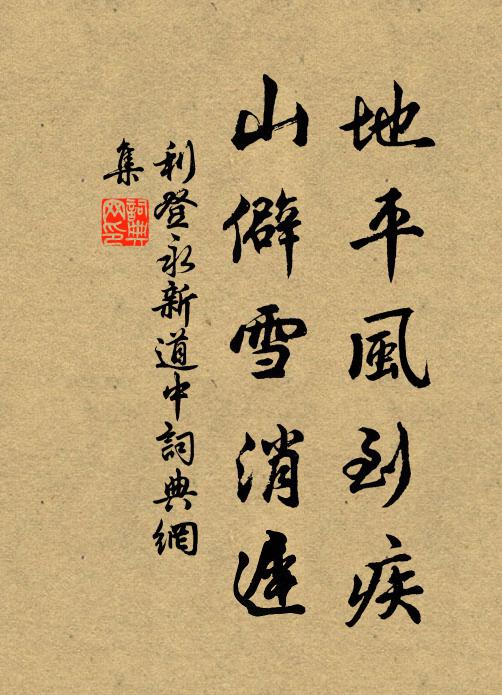 地平風到疾
山僻雪消遲
利登永新道中詞典網
集
詞典
网印